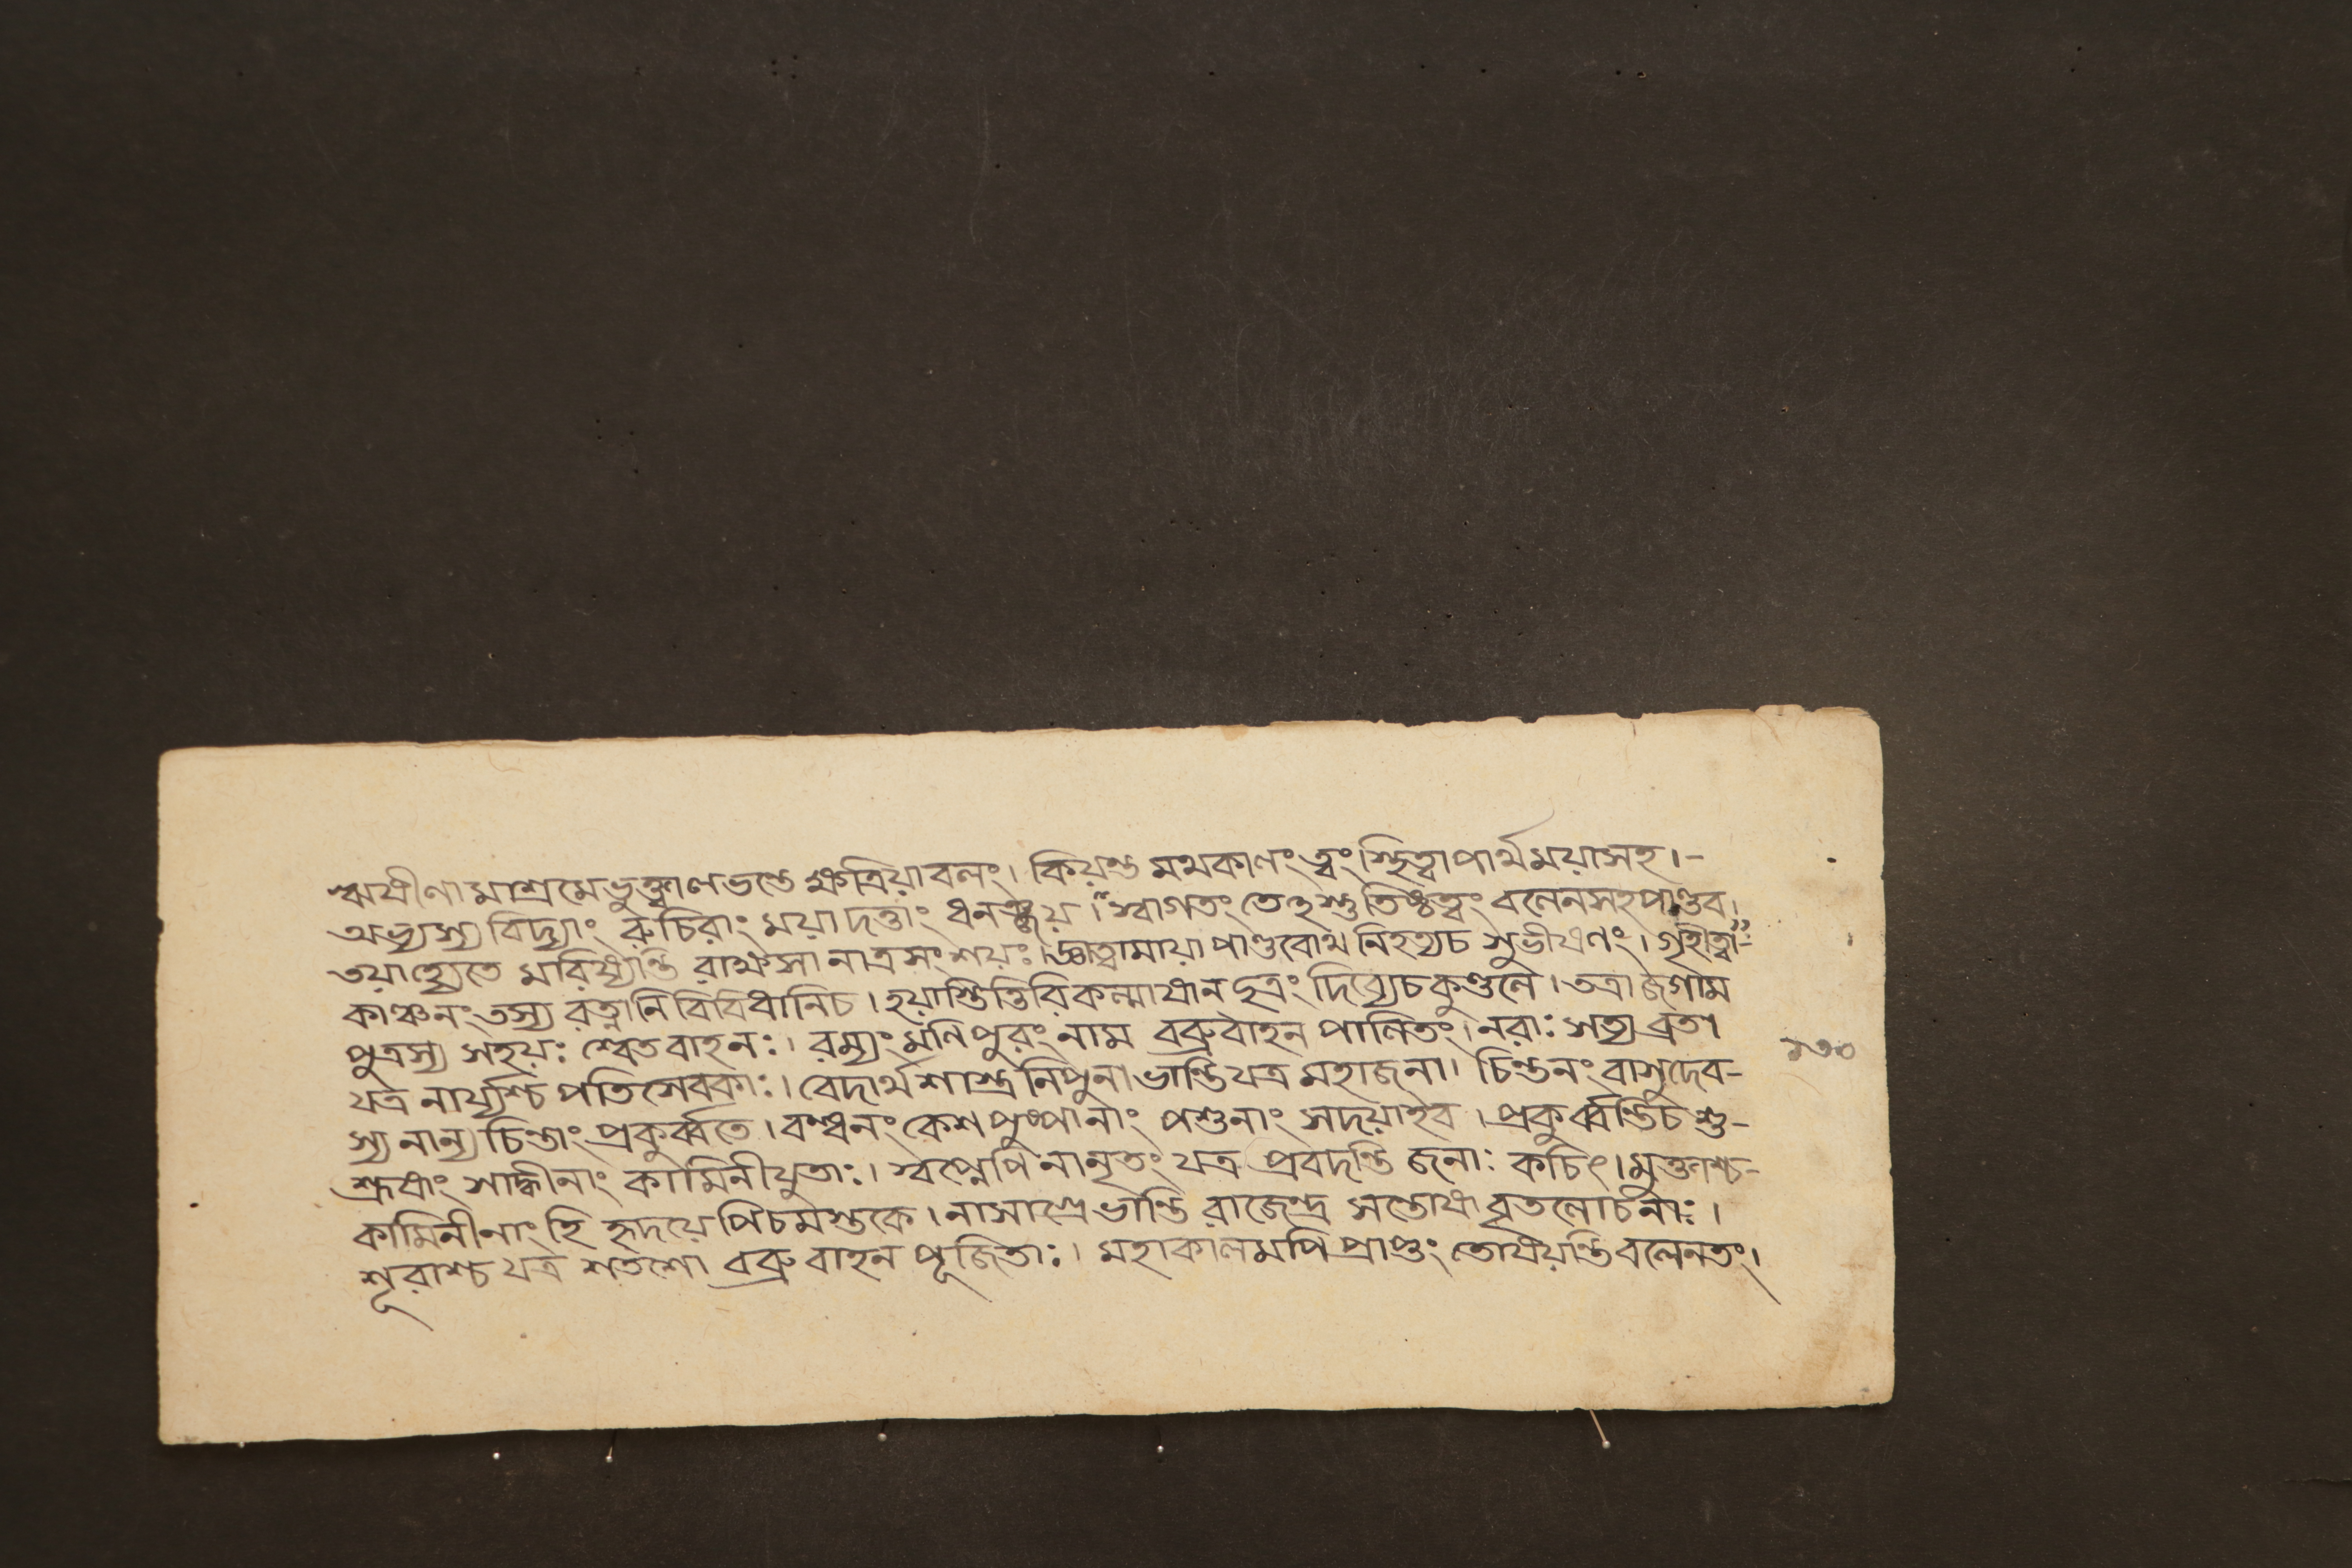 ঋষীণামাশ্রমেভুক্ত্বালভন্তে ক্ষত্রিয়াবলং। কিয়ন্ত মথকালং ত্বং স্থিত্বাপার্থময়াসহ।-
অভ্যস্য বিদ্যাং রুচিরাং ময়াদত্তাং ধনঞ্জয়। স্বাগতং তেহস্তু তিষ্ঠত্বং বলেনসহপাণ্ডব।
তয়াহ্যেতে মরিষ্যন্তি রাক্ষসা নাত্রসংশয়ঃ। জ্ঞাত্বামায়া পাণ্ডবোথ নিহত্যচ সুভীষণং। গৃহীত্বা-
কাঞ্চনং তস্য রত্নানি বিবিধানিচ। হয়াংস্তিত্তিরিকল্মাষান ছত্রং দিব্যেচকুণ্ডলে। তত্রাজগাম
পুত্রস্য সহয়ঃ শ্বেতবাহনঃ। রম্যং মণিপুরং নাম বব্রুবাহন পালিতং। নরাঃ সত্যব্রতা
যত্র নার্য্যশ্চ পতিসেবকাঃ। বেদার্থশাস্ত্রনিপুনা ভান্তিযত্র মহাজনা। চিন্তনং বাসুদেব-
স্য নান্য চিন্তাং প্রকুর্ব্বতে। বন্ধনং কেশপুষ্পানাং পশুনাং সদয়াহব। প্রকুর্ব্বন্তিচ শু-
শ্রূষাং সাধ্বীনাং কামিনীযুতাঃ। স্বপ্নেপি নানৃতং যত্র প্রবদন্তি জনাঃ কচিৎ। মুক্তাশ্চ-
কামিনীনাং হি হৃদয়েপিচমস্তকে। নাসাগ্রে ভান্তি রাজেন্দ্র সন্তোষা বৃতলোচনাঃ।
শূরাশ্চ যত্র শতশো বব্রুবাহন পূজিতাঃ। মহাকালমপি প্রাপ্তং তোষয়ন্তি বলেনতং।
১৩০